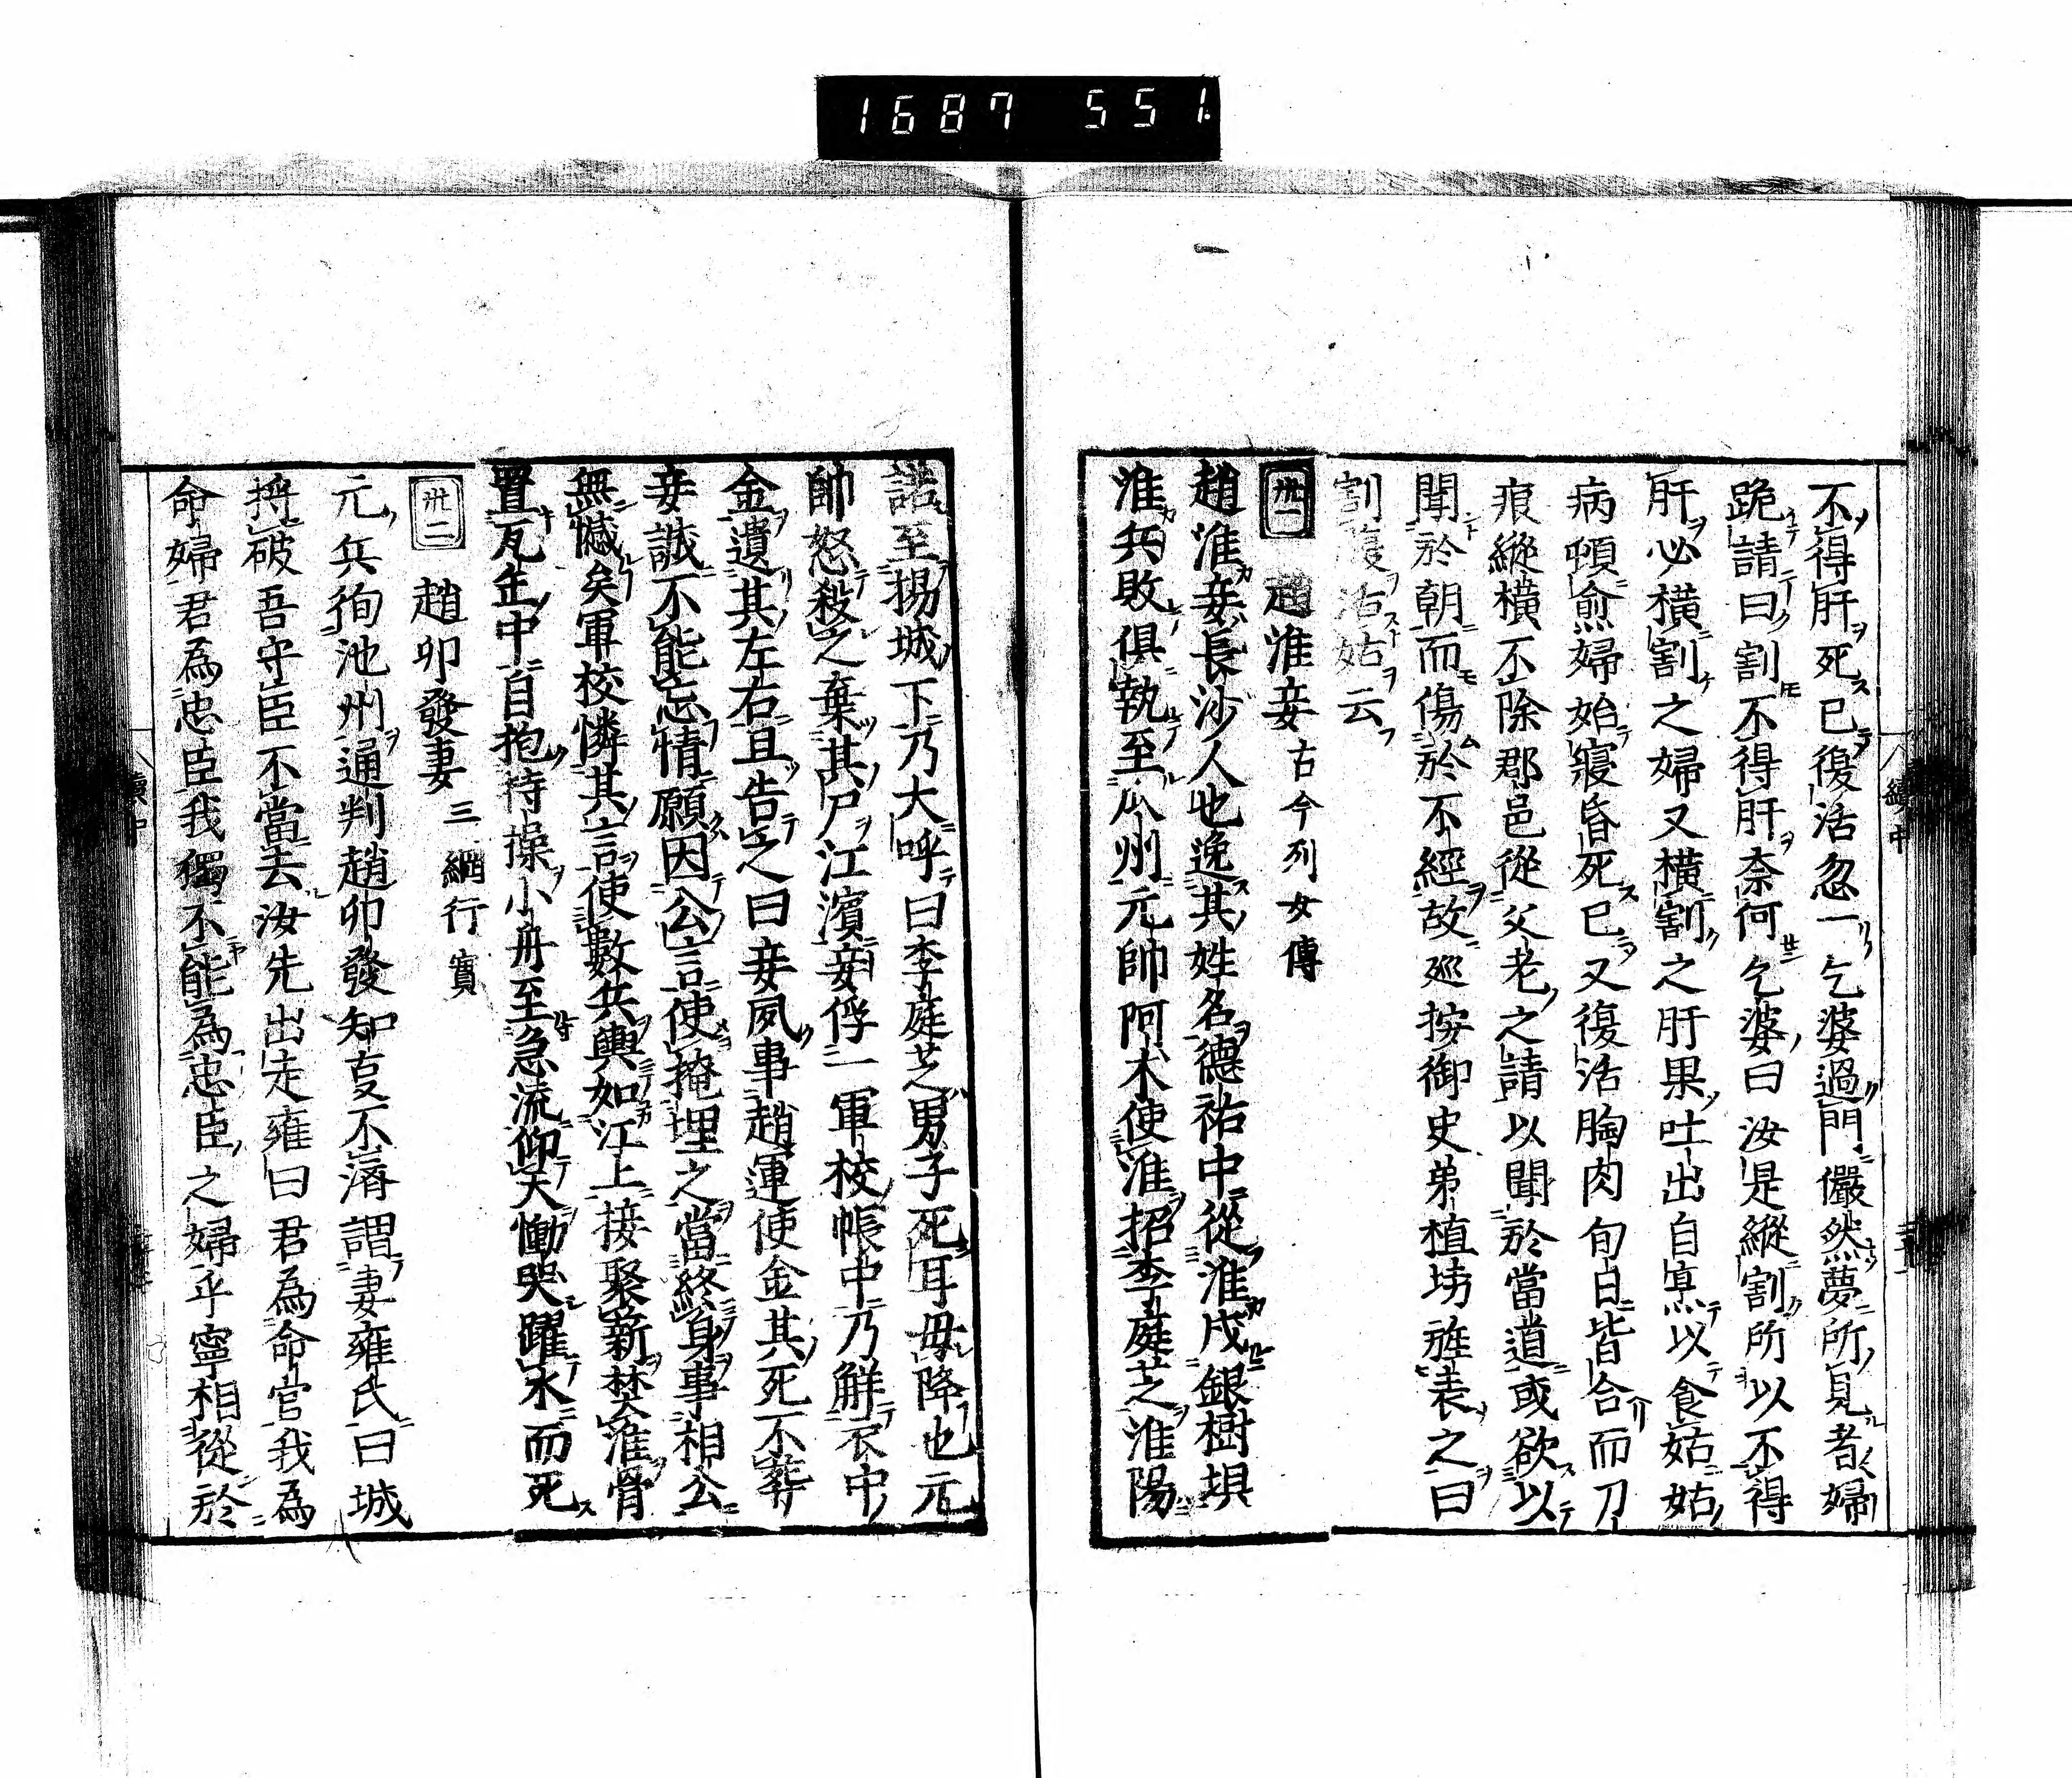 1687 551
不得肝死已復活忽一乞婆過門儼然夢所見者婦
跪請曰割不得肝奈何乞婆曰汝是縱割所以不得
肝必橫割之婦又橫割之肝果吐出自烹以食姑姑
病頓愈婦始寢昏死已又復活胸肉旬日皆合而刀
痕縱橫不除郡邑從父老之請以聞於當道或欲以
聞於朝而傷於不經故巡按御史弟植坊旌表之曰
割肝活姑云
卅一 趙淮妾 古今列女傳
趙淮妾長沙人也逸其姓名德祐中從淮戍銀樹埧
淮兵敗俱執至瓜州元帥阿朮使淮招李庭芝淮陽
諾至揚城下乃大呼曰李庭芝男子死耳毋降也元
帥怒殺之棄其尸江濱妾俘一軍校帳中乃解衣中
金遺其左右且告之曰妾夙事趙運使金其死不葬
妾誠不能忘情願因公言使掩埋之當終身事相公
無憾矣軍校憐其言使數兵輿如江上妾聚薪焚淮骨
置瓦缶中自抱持操小舟至急流仰天慟哭躍水而死
卅二 趙卯發妻 三綱行實
元兵徇池州通判趙卯發知事不濟謂妻雍氏曰城
將破吾守臣不當去汝先出走雍曰君為命官我為
命婦君為忠臣我獨不能為忠臣之婦乎寧相從於